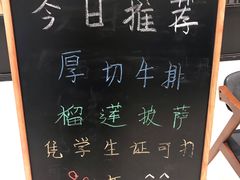 今日推荐
厚切牛排
榴莲披萨
凭学生证可打